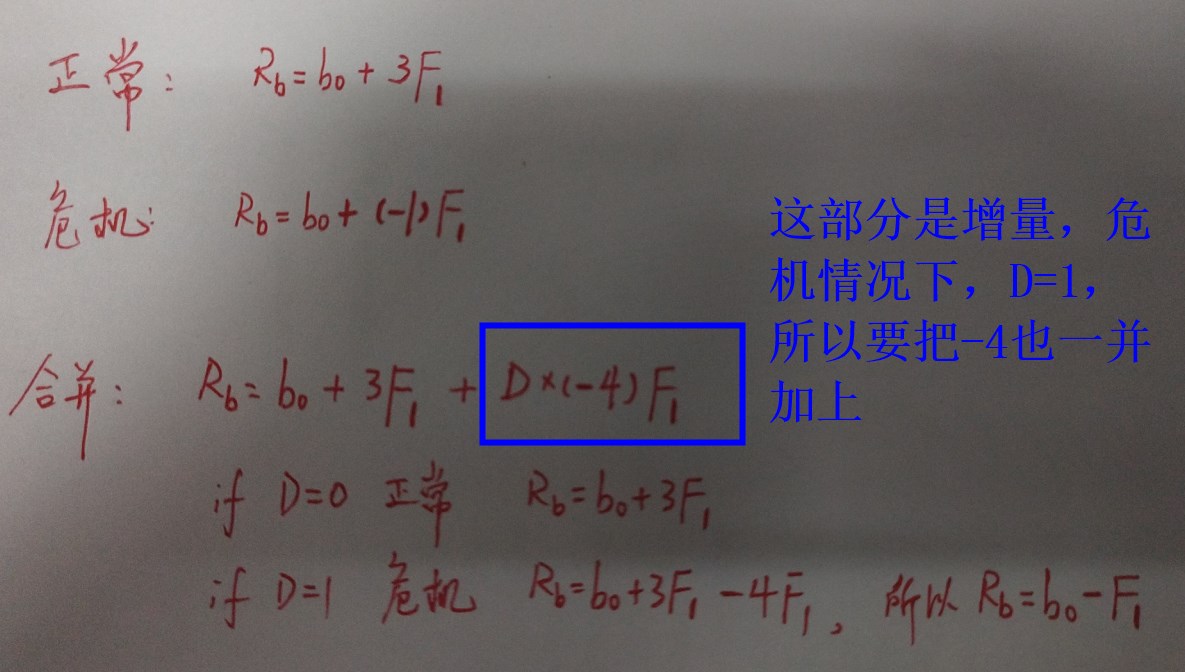 正常： R_b=b_0+3F_1
危机： R_b=b_0+(-1)F_1
合并： R_b=b_0+3F_1+D×(-4)F_1
这部分是增量，危
机情况下，D=1，
所以要把-4也一并
加上
if D=0 正常 R_b=b_0+3F_1
if D=1 危机 R_b=b_0+3F_1-4F_1，所以 R_b=b_0-F_1